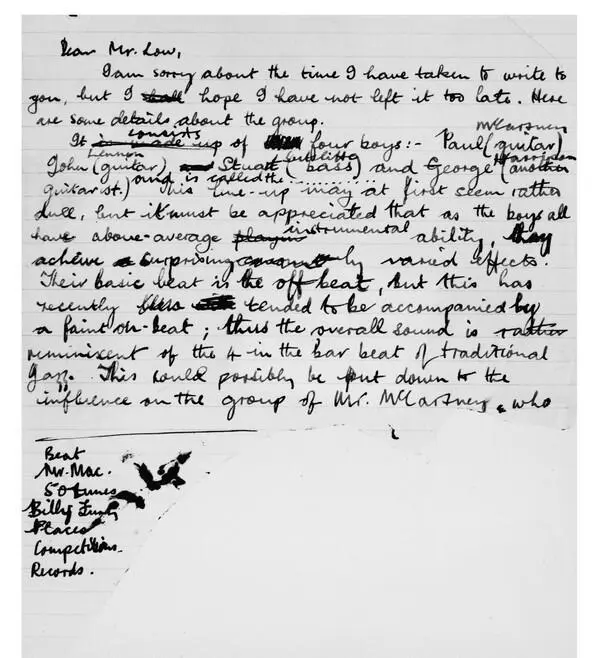 Dear Mr. Low,
I am sorry about the time I have taken to write to
you, but I shall hope I have not left it too late. Here
are some details about the group.
consists McCartney
It is made up of four boys:- Paul (guitar)
Lennon Sutcliffe Harrison
John (guitar) and Stuart (bass) and George (another
and is called the ............
guitarist.) This line-up may at first seem rather
dull, but it must be appreciated that as the boys all
instrumental
have above-average playing ability, they
achieve a surprisingly varied effects.
Their basic beat is the off beat, but this has
recently tended to be accompanied by
a faint on-beat; thus the overall sound is rather
reminiscent of the 4 in the bar beat of traditional
jazz. This could possibly be put down to the
influence on the group of Mr. McCartney, who
Beat
Mr. Mac.
50 tunes
Billy Fury
Places
Competitions.
Records.